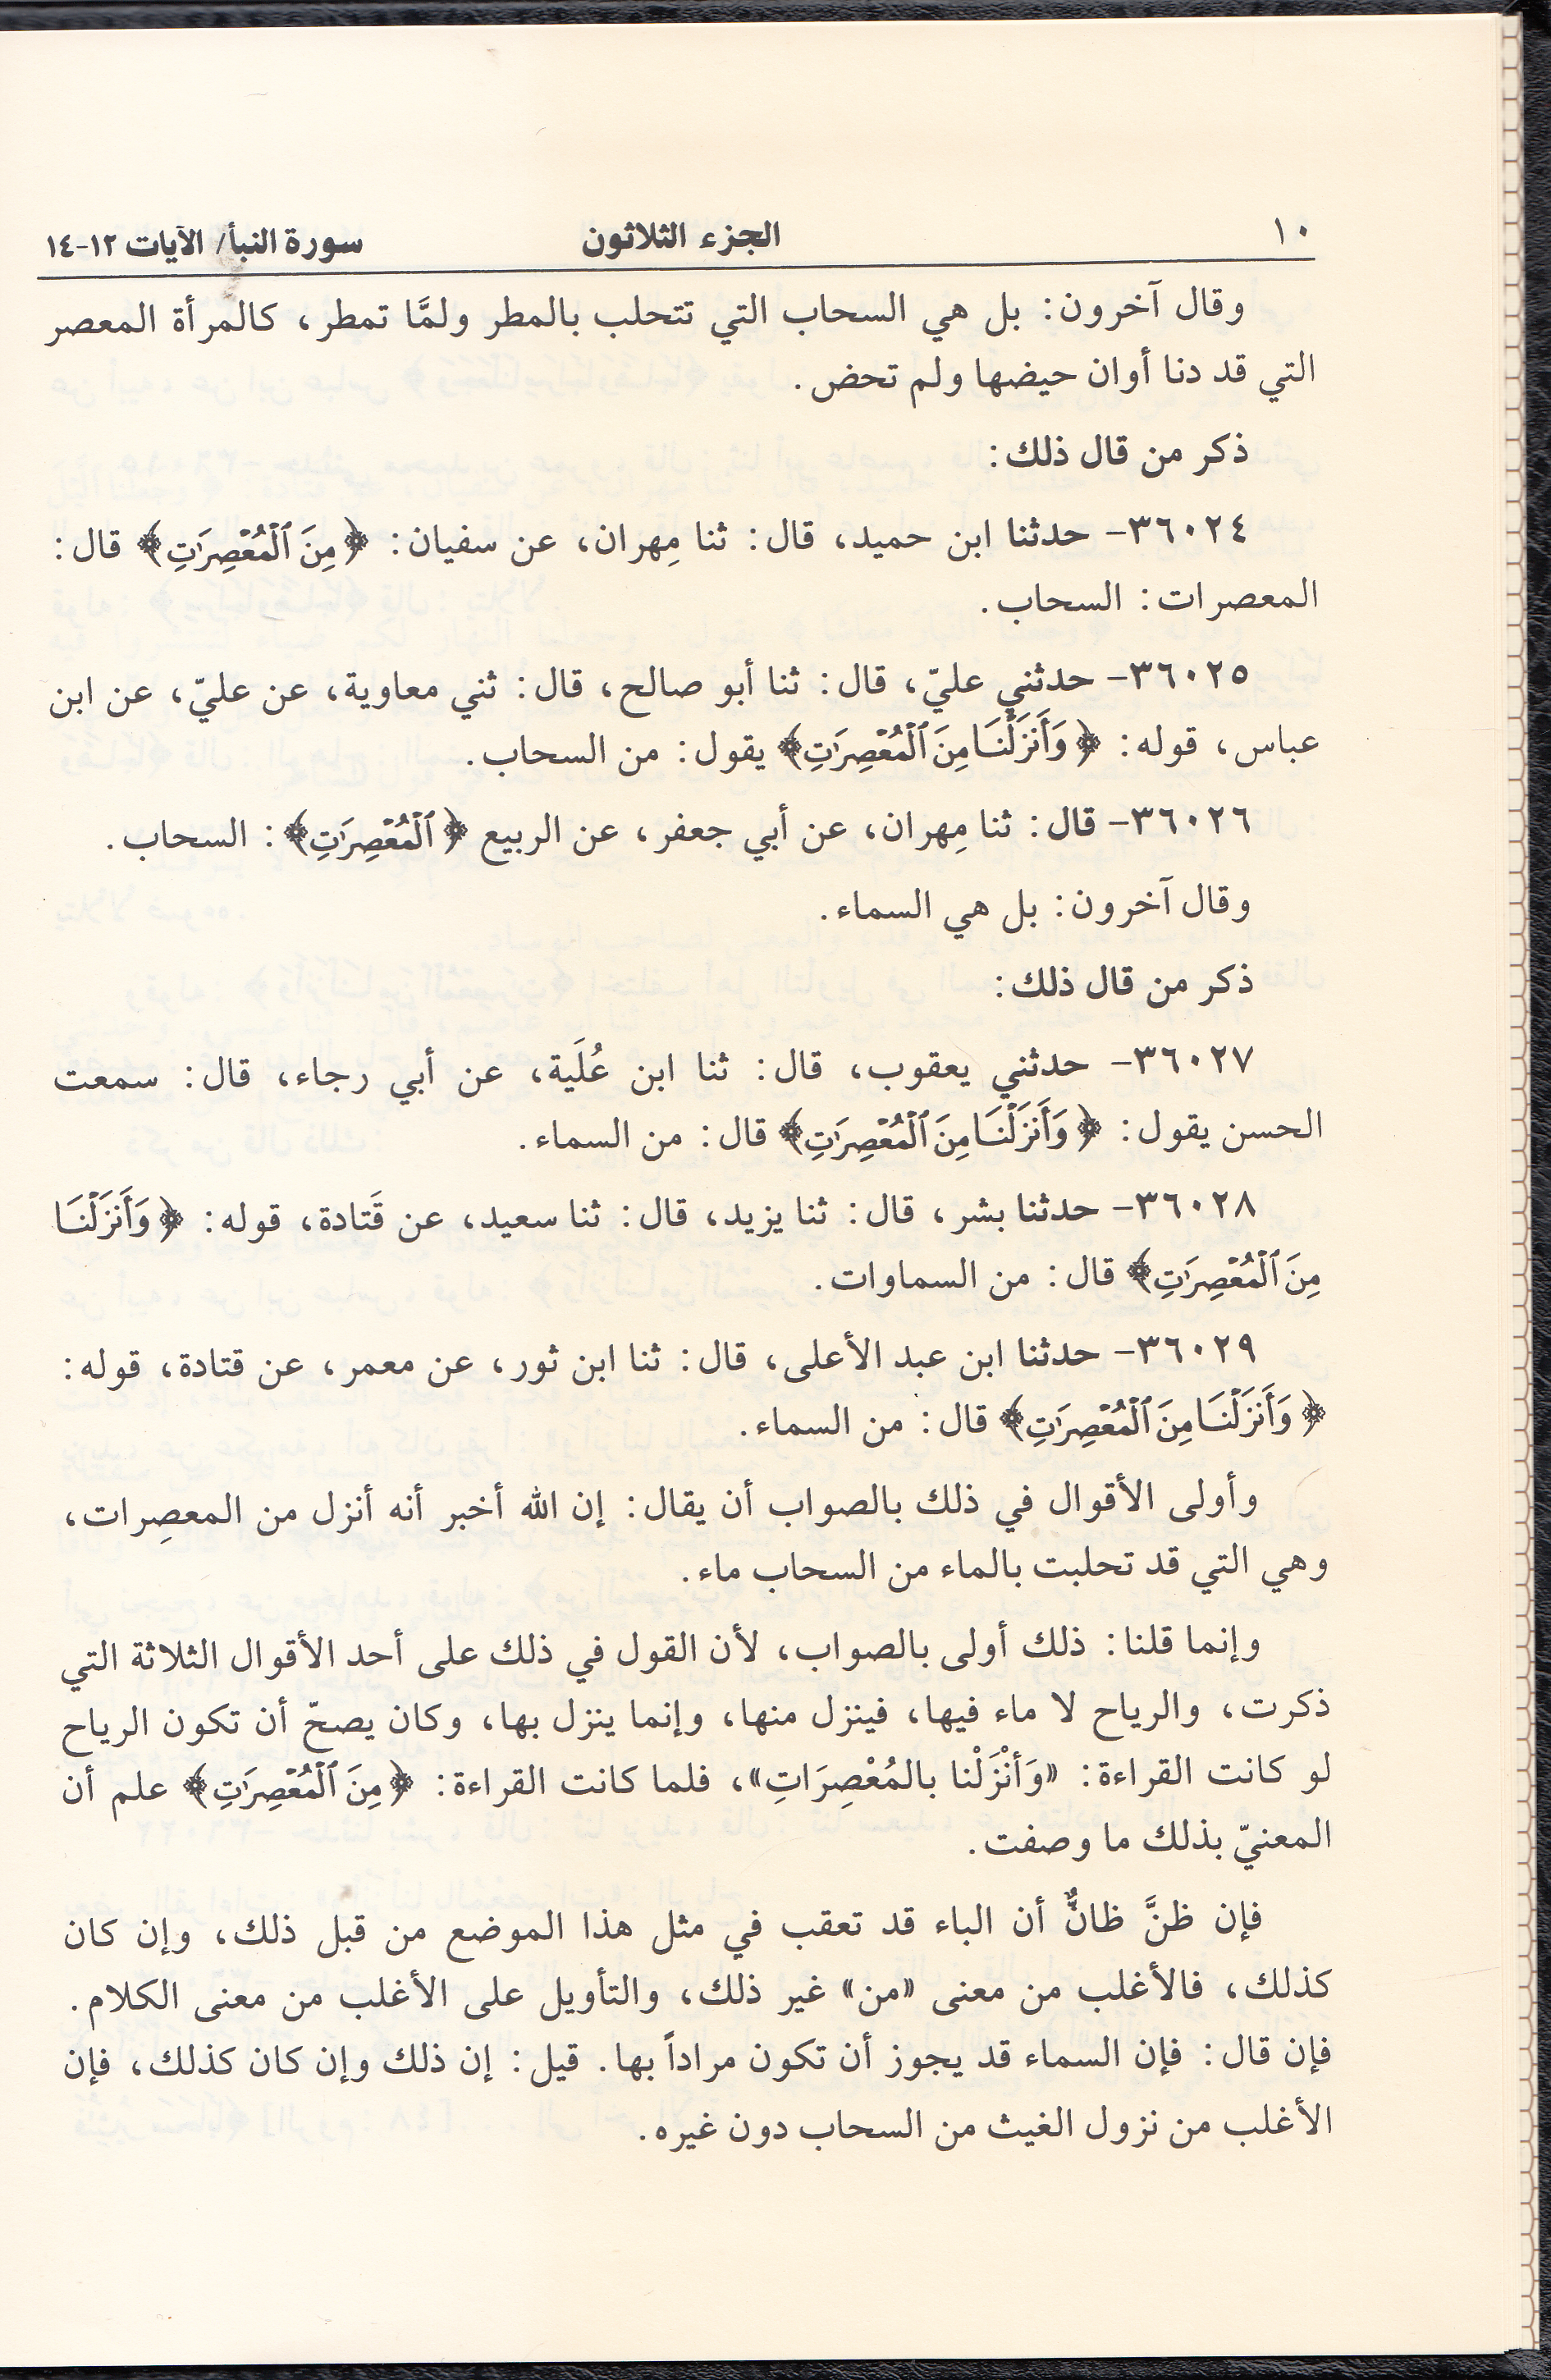 ١٠ الجزء الثلاثون سورة النبأ/ الآيات ١٢-١٤
وقال آخرون: بل هي السحاب التي تتحلب بالمطر ولمَّا تمطر، كالمرأة المعصر
التي قد دنا أوان حيضها ولم تحض.
ذكر من قال ذلك:
٣٦٠٢٤- حدثنا ابن حميد، قال: ثنا مِهران، عن سفيان: ﴿مِنَ ٱلْمُعْصِرَٰتِ﴾ قال:
المعصرات: السحاب.
٣٦٠٢٥- حدثني عليّ، قال: ثنا أبو صالح، قال: ثني معاوية، عن عليّ، عن ابن
عباس، قوله: ﴿وَأَنزَلْنَا مِنَ ٱلْمُعْصِرَٰتِ﴾ يقول: من السحاب.
٣٦٠٢٦- قال: ثنا مِهران، عن أبي جعفر، عن الربيع ﴿ٱلْمُعْصِرَٰتِ﴾: السحاب.
وقال آخرون: بل هي السماء.
ذكر من قال ذلك:
٣٦٠٢٧- حدثني يعقوب، قال: ثنا ابن عُلَية، عن أبي رجاء، قال: سمعت
الحسن يقول: ﴿وَأَنزَلْنَا مِنَ ٱلْمُعْصِرَٰتِ﴾ قال: من السماء.
٣٦٠٢٨- حدثنا بشر، قال: ثنا يزيد، قال: ثنا سعيد، عن قَتادة، قوله: ﴿وَأَنزَلْنَا
مِنَ ٱلْمُعْصِرَٰتِ﴾ قال: من السماوات.
٣٦٠٢٩- حدثنا ابن عبد الأعلى، قال: ثنا ابن ثور، عن معمر، عن قتادة، قوله:
﴿وَأَنزَلْنَا مِنَ ٱلْمُعْصِرَٰتِ﴾ قال: من السماء.
وأولى الأقوال في ذلك بالصواب أن يقال: إن الله أخبر أنه أنزل من المعصِرات،
وهي التي قد تحلبت بالماء من السحاب ماء.
وإنما قلنا: ذلك أولى بالصواب، لأن القول في ذلك على أحد الأقوال الثلاثة التي
ذكرت، والرياح لا ماء فيها، فينزل منها، وإنما ينزل بها، وكان يصحّ أن تكون الرياح
لو كانت القراءة: «وَأنْزَلْنا بالمُعْصِرَاتِ»، فلما كانت القراءة: ﴿مِنَ ٱلْمُعْصِرَٰتِ﴾ علم أن
المعنيّ بذلك ما وصفت.
فإن ظنَّ ظانٌّ أن الباء قد تعقب في مثل هذا الموضع من قبل ذلك، وإن كان
كذلك، فالأغلب من معنى «من» غير ذلك، والتأويل على الأغلب من معنى الكلام.
فإن قال: فإن السماء قد يجوز أن تكون مراداً بها. قيل: إن ذلك وإن كان كذلك، فإن
الأغلب من نزول الغيث من السحاب دون غيره.